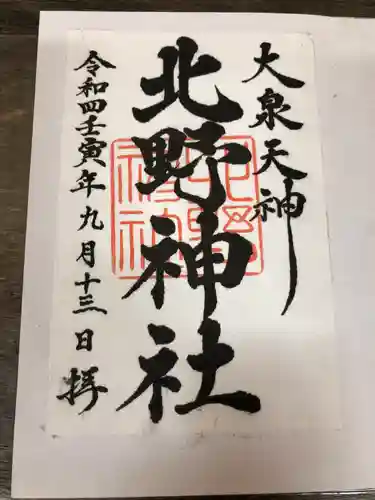 大泉天神
北野神社
令和四壬寅年九月十三日拝